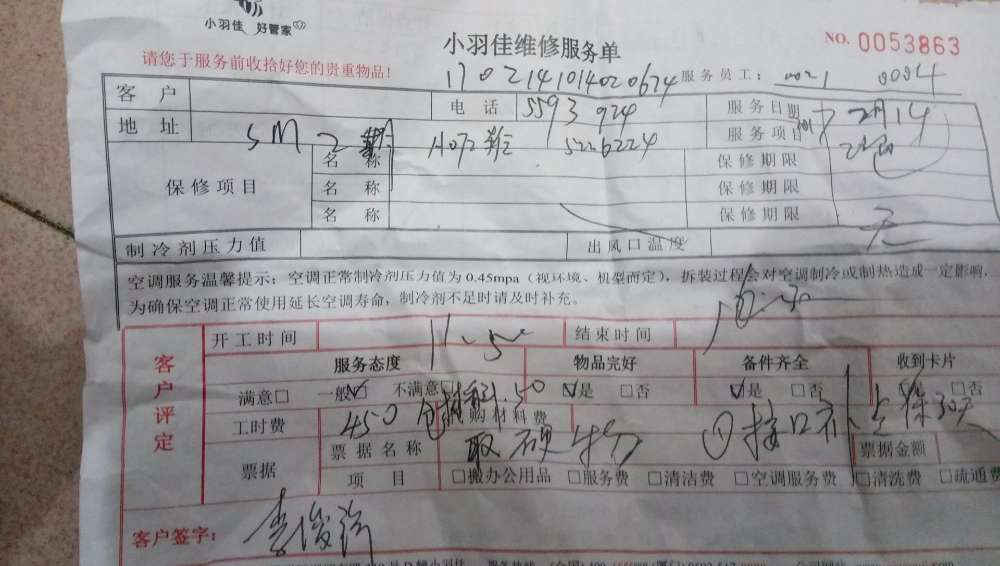 小羽佳 好管家
小羽佳维修服务单
NO. 0053863
请您于服务前收拾好您的贵重物品！
1702141014020674
服务员工： 0021 0094
客户 电话 5593924 服务日期 2月14
地址 SM2期 服务项目
5226224
保修项目 名称 保修期限
名称 保修期限
名称 保修期限 无
制冷剂压力值 出风口温度
空调服务温馨提示：空调正常制冷剂压力值为 0.45mpa（视环境、机型而定），拆装过程会对空调制冷或制热造成一定影响，
为确保空调正常使用延长空调寿命，制冷剂不足时请及时补充。
客户评定
开工时间 结束时间
服务态度 物品完好 备件齐全 收到卡片
满意□ 一般☑ 不满意□ ☑是 □否 ☑是 □否 是 □否
工时费 450包材料.50 购材料费
票据 票据名称 取硬物 票据金额
项目 □搬办公用品 □服务费 □清洁费 □空调服务费 □清洗费 □疏通费
客户签字：